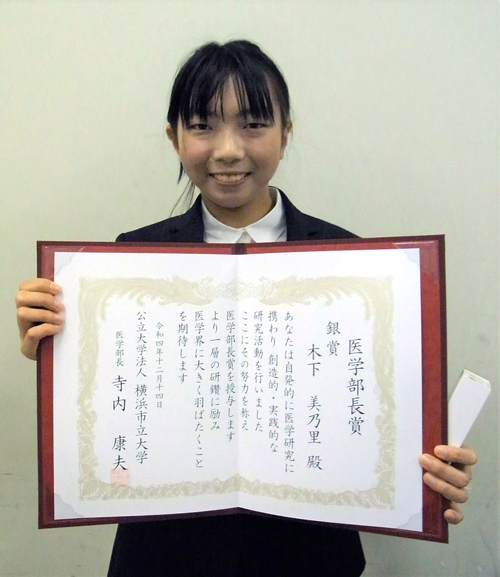 医学部長賞
銀賞
木下 美乃里 殿
あなたは自発的に医学研究に
携わり 創造的・実践的な
研究活動を行いました
ここにその努力を称え
医学部長賞を授与します
より一層の研鑽に励み
医学界に大きく羽ばたくこと
を期待します
令和四年十二月十四日
公立大学法人 横浜市立大学
医学部長 寺内 康夫